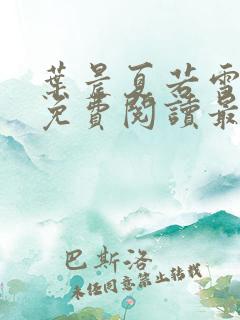 葉昊夏若雪
免費閱讀最
巴斯洛
未經同意禁止轉載